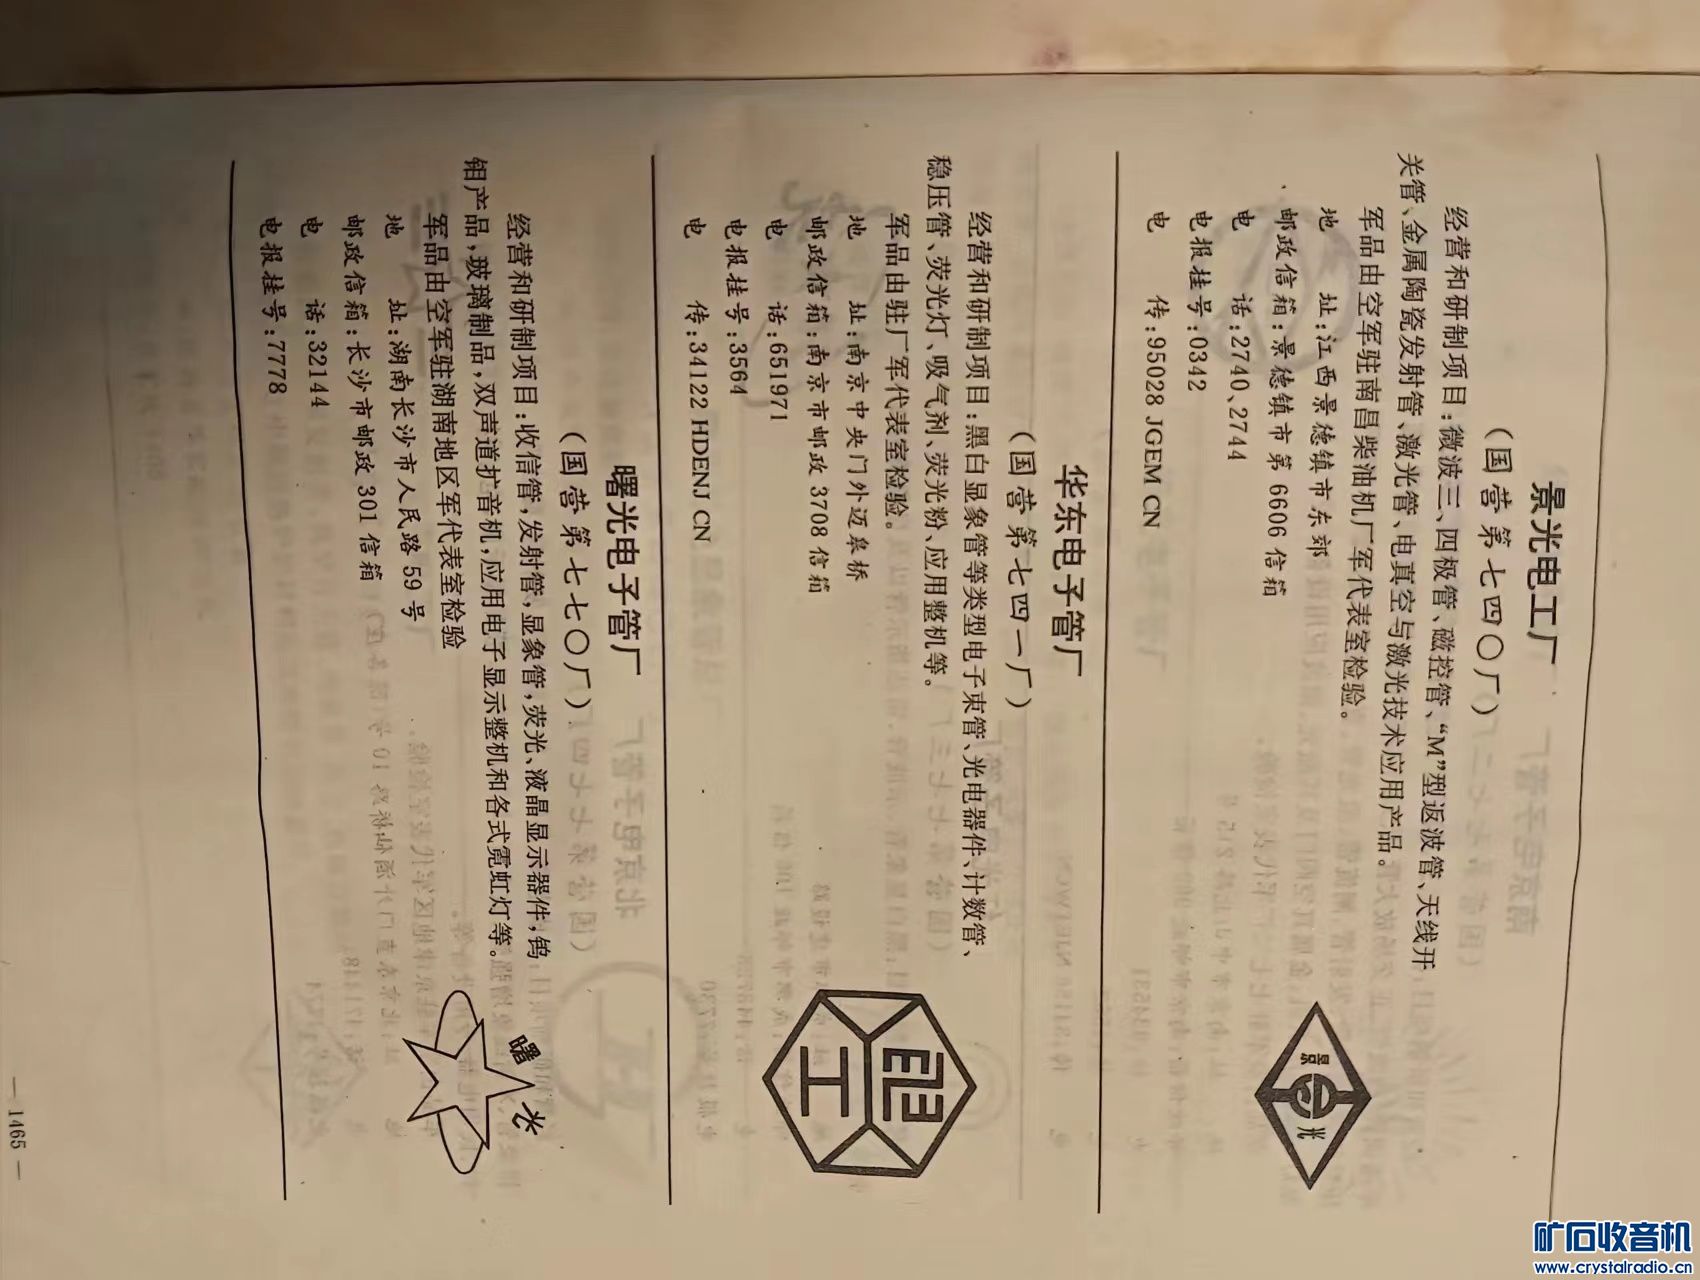 景光电工厂
(国营第七四〇厂)
经营和研制项目:微波三、四极管、磁控管、“M”型返波管、天线开
关管、金属陶瓷发射管、激光管、电真空与激光技术应用产品。
军品由空军驻南昌柴油机厂军代表室检验。
地 址:江西景德镇市东郊
邮政信箱:景德镇市第 6606 信箱
电 话:2740、2744
电报挂号:0342
电 传:95028 JGEM CN
景光
华东电子管厂
(国营第七四一厂)
经营和研制项目:黑白显象管等类型电子束管、光电器件、计数管、
稳压管、荧光灯、吸气剂、荧光粉、应用整机等。
军品由驻厂军代表室检验。
地 址:南京中央门外迈皋桥
邮政信箱:南京市邮政 3708 信箱
电 话:651971
电报挂号:3564
电 传:34122 HDENJ CN
曙光电子管厂
(国营第七七〇厂)
经营和研制项目:收信管,发射管,显象管,荧光、液晶显示器件,钨
钼产品,玻璃制品,双声道扩音机,应用电子显示整机和各式霓虹灯等。
军品由空军驻湖南地区军代表室检验
地 址:湖南长沙市人民路 59 号
邮政信箱:长沙市邮政 301 信箱
电 话:32144
电报挂号:7778
曙光
— 1465 —
矿石收音机
www.crystalradio.cn